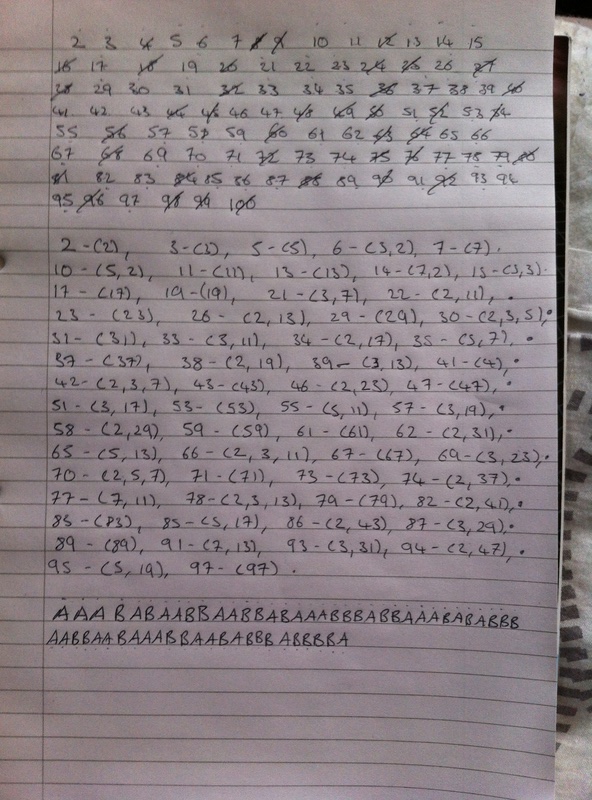 2 3 4 5 6 7 8 9 10 11 12 13 14 15
16 17 18 19 20 21 22 23 24 25 26 27
28 29 30 31 32 33 34 35 36 37 38 39 40
41 42 43 44 45 46 47 48 49 50 51 52 53 54
55 56 57 58 59 60 61 62 63 64 65 66
67 68 69 70 71 72 73 74 75 76 77 78 79 80
81 82 83 84 85 86 87 88 89 90 91 92 93 94
95 96 97 98 99 100
2-(2), 3-(3), 5-(5), 6-(3,2), 7-(7).
10-(5,2), 11-(11), 13-(13), 14-(7,2), 15-(5,3).
17-(17), 19-(19), 21-(3,7), 22-(2,11),.
23-(23), 26-(2,13), 29-(29), 30-(2,3,5),.
31-(31), 33-(3,11), 34-(2,17), 35-(5,7).
37-(37), 38-(2,19), 39-(3,13), 41-(4),.
42-(2,3,7), 43-(43), 46-(2,23), 47-(47),.
51-(3,17), 53-(53), 55-(5,11), 57-(3,19),.
58-(2,29), 59-(59), 61-(61), 62-(2,31),.
65-(5,13), 66-(2,3,11), 67-(67), 69-(3,23),.
70-(2,5,7), 71-(71), 73-(73), 74-(2,37).
77-(7,11), 78-(2,3,13), 79-(79), 82-(2,41),.
83-(83), 85-(5,17), 86-(2,43), 87-(3,29),.
89-(89), 91-(7,13), 93-(3,31), 94-(2,47),.
95-(5,19), 97-(97).
AAABABAABBAABBABAAABBBABBAAABABABBB
AABBAABAAABBAABABBBABBBBA